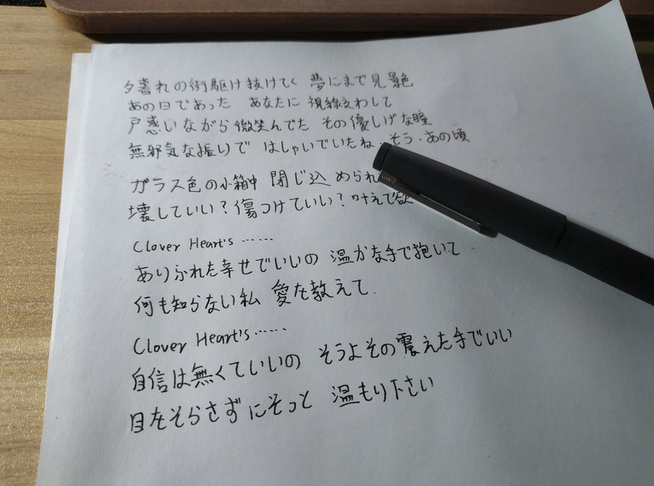 夕暮れの街駆け抜けてく 夢にまで見
あの日であった あなたに 視線交わして
戸惑いながら微笑んでた その優しげな瞳
無邪気な振りで はしゃいでいたね そう、あの頃
ガラス色の小箱中 閉じ込められ
壊していい?傷つけていい?叶えて欲
Clover Heart's ……
ありふれた幸せでいいの 温かな手で抱いて
何も知らない私 愛を教えて.
Clover Heart's ……
自信は無くていいの そうよその震えた手でいい
目をそらさずにそっと 温もり下さい